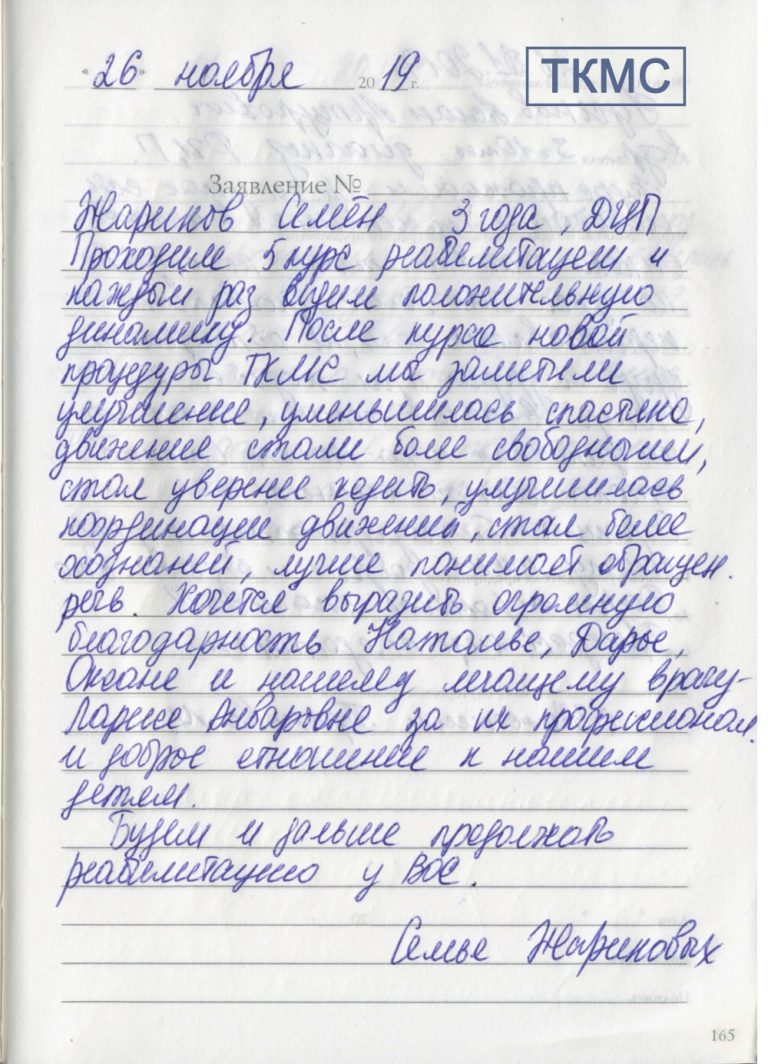 «26» ноября 2019 г.
ТКМС
Заявление №
Жариков Семён 3 года, ДЦП
Проходим 5 курс реабилитации и
каждый раз видим положительную
динамику. После курса новой
процедуры ТКМС мы заметили
улучшение, уменьшилась спастика,
движение стали более свободными,
стал уверенее ходить, улучшилась
координация движений, стал более
осознаней, лучше понимает обращен.
речь. Хочется выразить огромную
благодарность Наталье, Дарье,
Оксане и нашему лечащему врачу-
Ларисе Анваровне за их профессионал.
и доброе отношение к нашим
детям.
Будем и дальше продолжать
реабилитацию у Вас.
Семья Жариковых
165